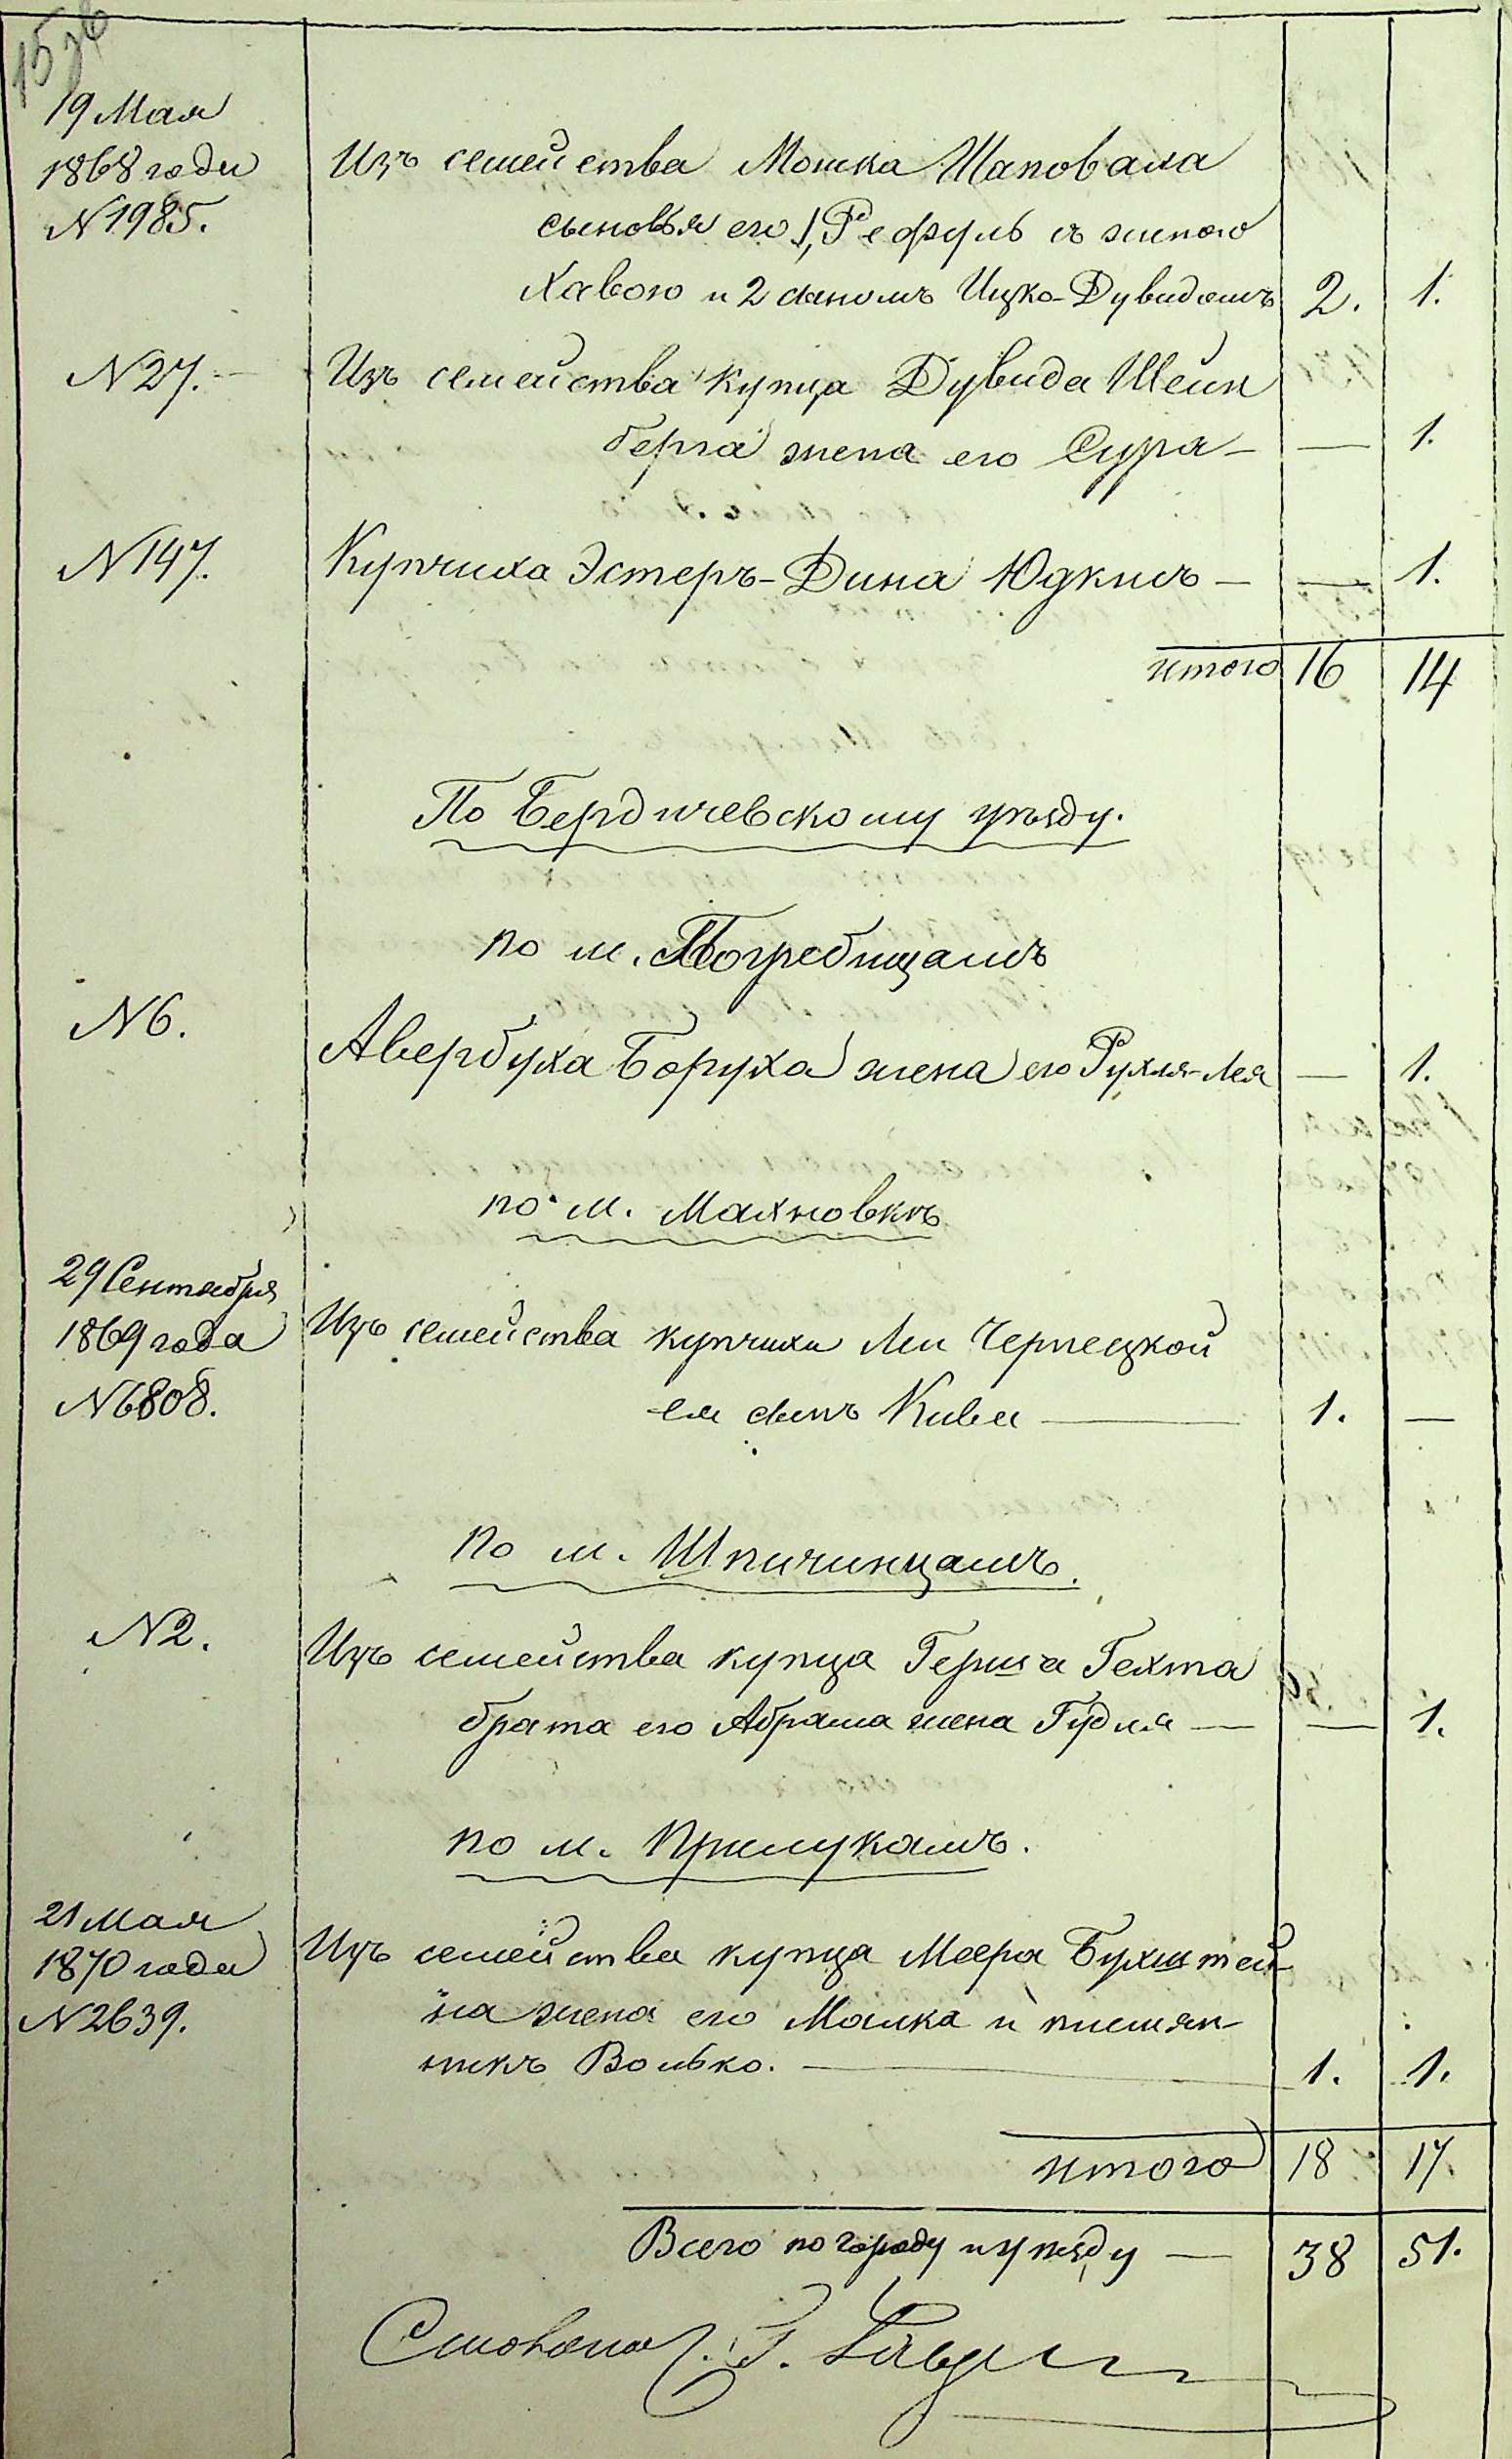 19 Мая
1868 года
N 1985.
Изъ семейства Мошка Шаповала
сыновья его 1, Рефуль съ женою
Хавою и 2 сыномъ Ицко-Дувидомъ 2. 1.
N 27. —
Изъ семейства купца Дувида Шейн
берга жена его Сура — — 1.
N 147.
Купчиха Эстеръ-Дина Юдкисъ — — 1.
итого 16 14
По Бердичевскому уѣзду.
по м. Погребищамъ
N 6.
Авербуха Боруха жена его Рухля-Лея — 1.
по м. Махновкѣ
29 Сентября
1869 года
N 6808.
Изъ семейства купчихи Леи Чернецкой
ея сынъ Кива — 1. —
по м. Шпичинцамъ.
N 2.
Изъ семейства купца Герша Гехта
брата его Абрама жена Гудля — — 1.
по м. Прилукамъ.
21 Мая
1870 года
N 2639.
Изъ семейства купца Меера Бухштей-
на жена его Малка и племян-
никъ Волько. — 1. 1.
итого 18 17
Всего по городу и уѣзду — 38 51.